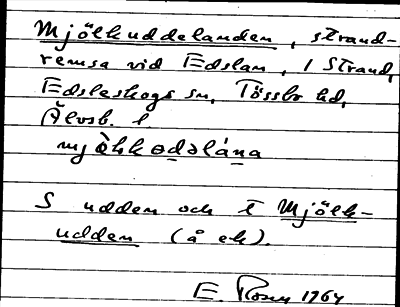 Mjölkuddelanden, strand-
remsa vid Edslan, 1 Strand,
Edsleskogs sn, Tössbo hd,
Älvsb. l
mjòkkədəlána
S udden och t Mjölk-
udden (å ek).
E. Rosen 1964